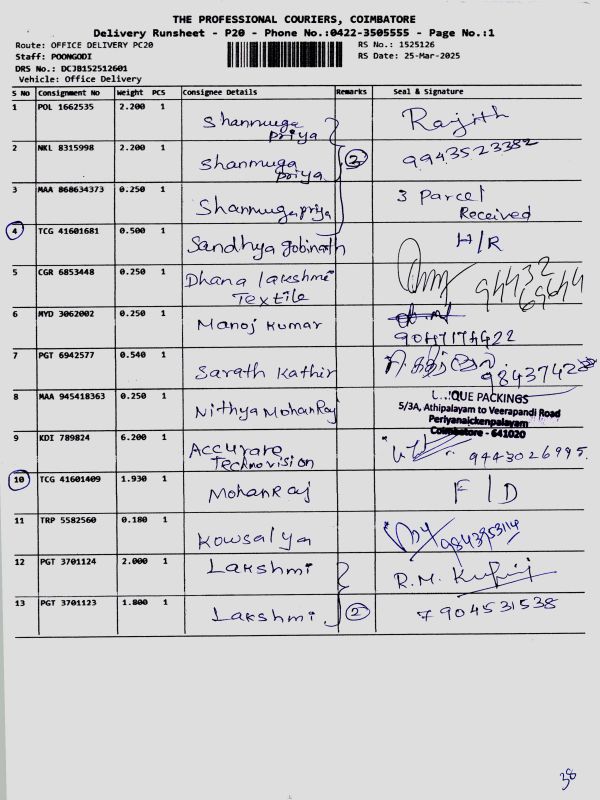 THE PROFESSIONAL COURIERS, COIMBATORE
Delivery Runsheet - P20 - Phone No.:0422-3505555 - Page No.:1
Route: OFFICE DELIVERY PC20
RS No.: 1525126
Staff: POONGODI
RS Date: 25-Mar-2025
DRS No.: DCJB152512601
Vehicle: Office Delivery
S No Consignment No Weight PCS Consignee Details Remarks Seal & Signature
1 POL 1662535 2.200 1 Shanmuga Priya Rajith
2 NKL 8315998 2.200 1 Shanmuga Priya 3 9943523382
3 MAA 868634373 0.250 1 Shanmugapriya 3 Parcel Received
4 TCG 41601681 0.500 1 Sandhya gobinath H/R
5 CGR 6853448 0.250 1 Dhana lakshmi Textile 94432 69644
6 MYD 3062002 0.250 1 Manoj Kumar 9047174422
7 PGT 6942577 0.540 1 Sarath Kathir
8 MAA 945418363 0.250 1 Nithya MohanRaj
QUE PACKINGS
5/3A, Athipalayam to Veerapandi Road
Periyanaickenpalayam
Coimbatore - 641020
9 KDI 789824 6.200 1 Accurare Technovision 9443026995
10 TCG 41601409 1.930 1 MohanRaj F/D
11 TRP 5582560 0.180 1 Kowsalya 9843953114
12 PGT 3701124 2.000 1 Lakshmi R.M.
13 PGT 3701123 1.800 1 Lakshmi 2 7904531538
38